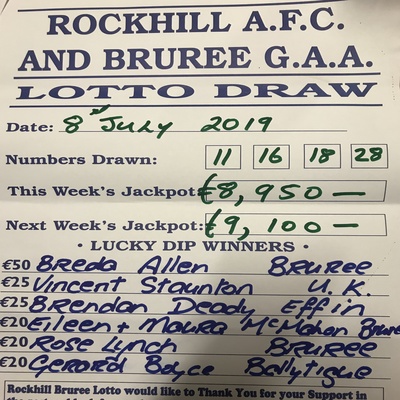 ROCKHILL A.F.C.
AND BRUREE G.A.A.
LOTTO DRAW
Date: 8st July 2019
Numbers Drawn: 11 16 18 28
This Week's Jackpot: €8,950 —
Next Week's Jackpot: €9,100 —
· LUCKY DIP WINNERS ·
€50 Breda Allen Bruree
€25 Vincent Staunton U.K.
€25 Brendan Deady Effin
€20 Eileen + Maura McMahon Brure
€20 Rose Lynch Bruree
€20 Gerard Boyce Ballytigue
Rockhill Bruree Lotto would like to Thank You for your Support in